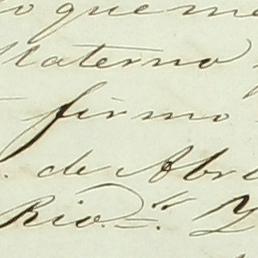 o que me
Materno
firmo
de Abr
Rio.